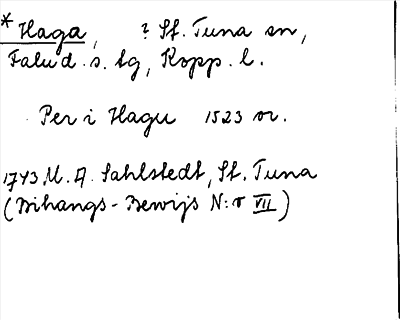 * Haga, ? St. Tuna sn,
Falu d. s. tg, Kopp. l.
Per i Hagu 1523 or.
1743 M. A. Sahlstedt, St. Tuna
(Bihangs-Bewijs N:r VII)